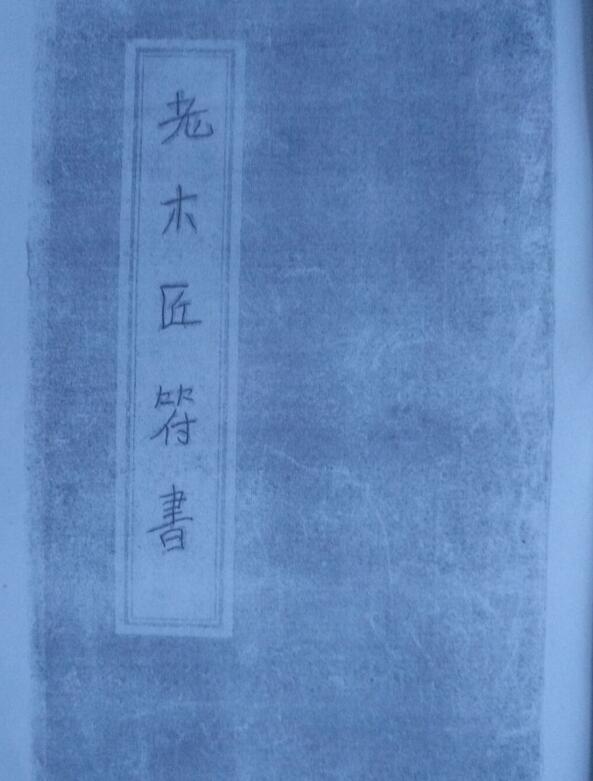 老木匠符書